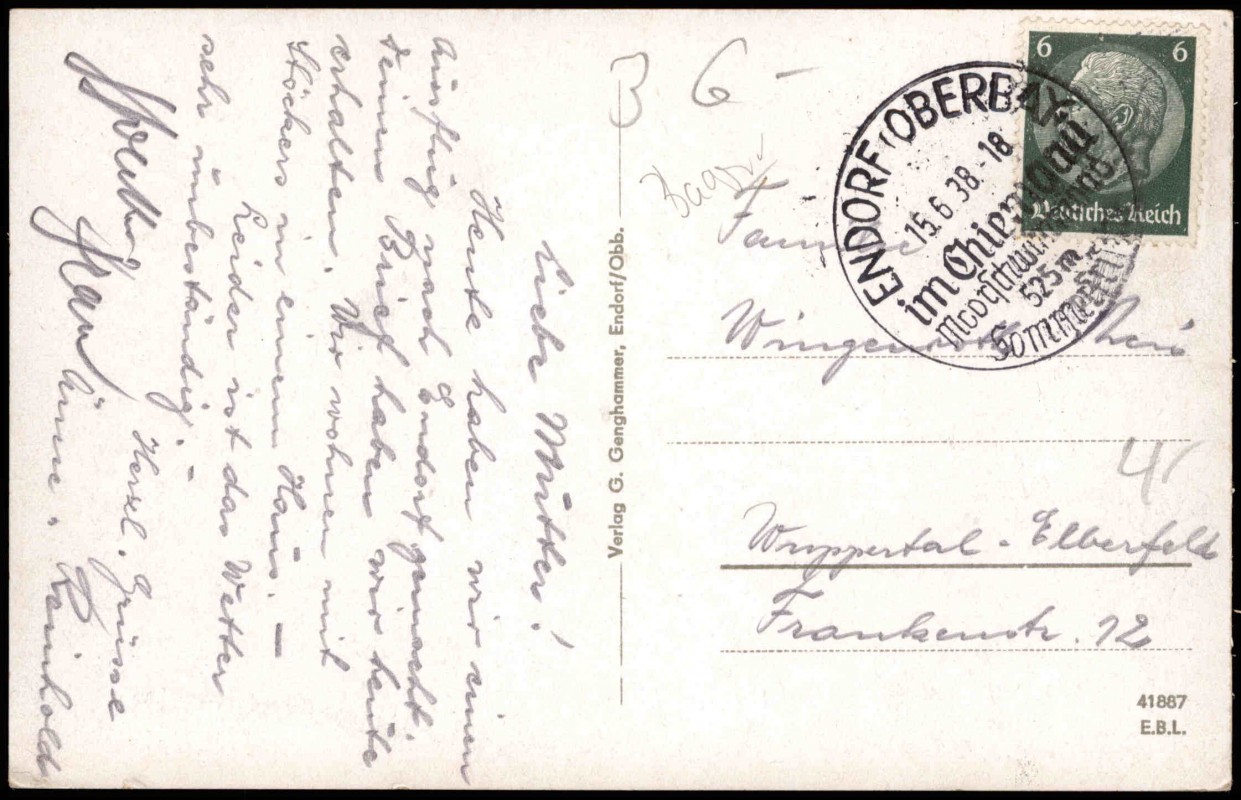 Liebe Mutter!
Heute haben wir einen
Ausflug nach Endorf gemacht.
Deinen Brief haben wir heute
erhalten. Wir wohnen mit
Stöckers in einem Haus. —
Leider ist das Wetter
sehr unbeständig. —
Herzl. Grüsse
Anne. Reinhold
Verlag G. Genghammer, Endorf/Obb.
3
6 —
Familie
Wuppertal-Elberfeld
Frankenstr. 12
4
ENDORF (OBERBAY.)
15.6.38.-18
im Chiemgau
525 m
6 6
Deutsches Reich
41887
E.B.L.